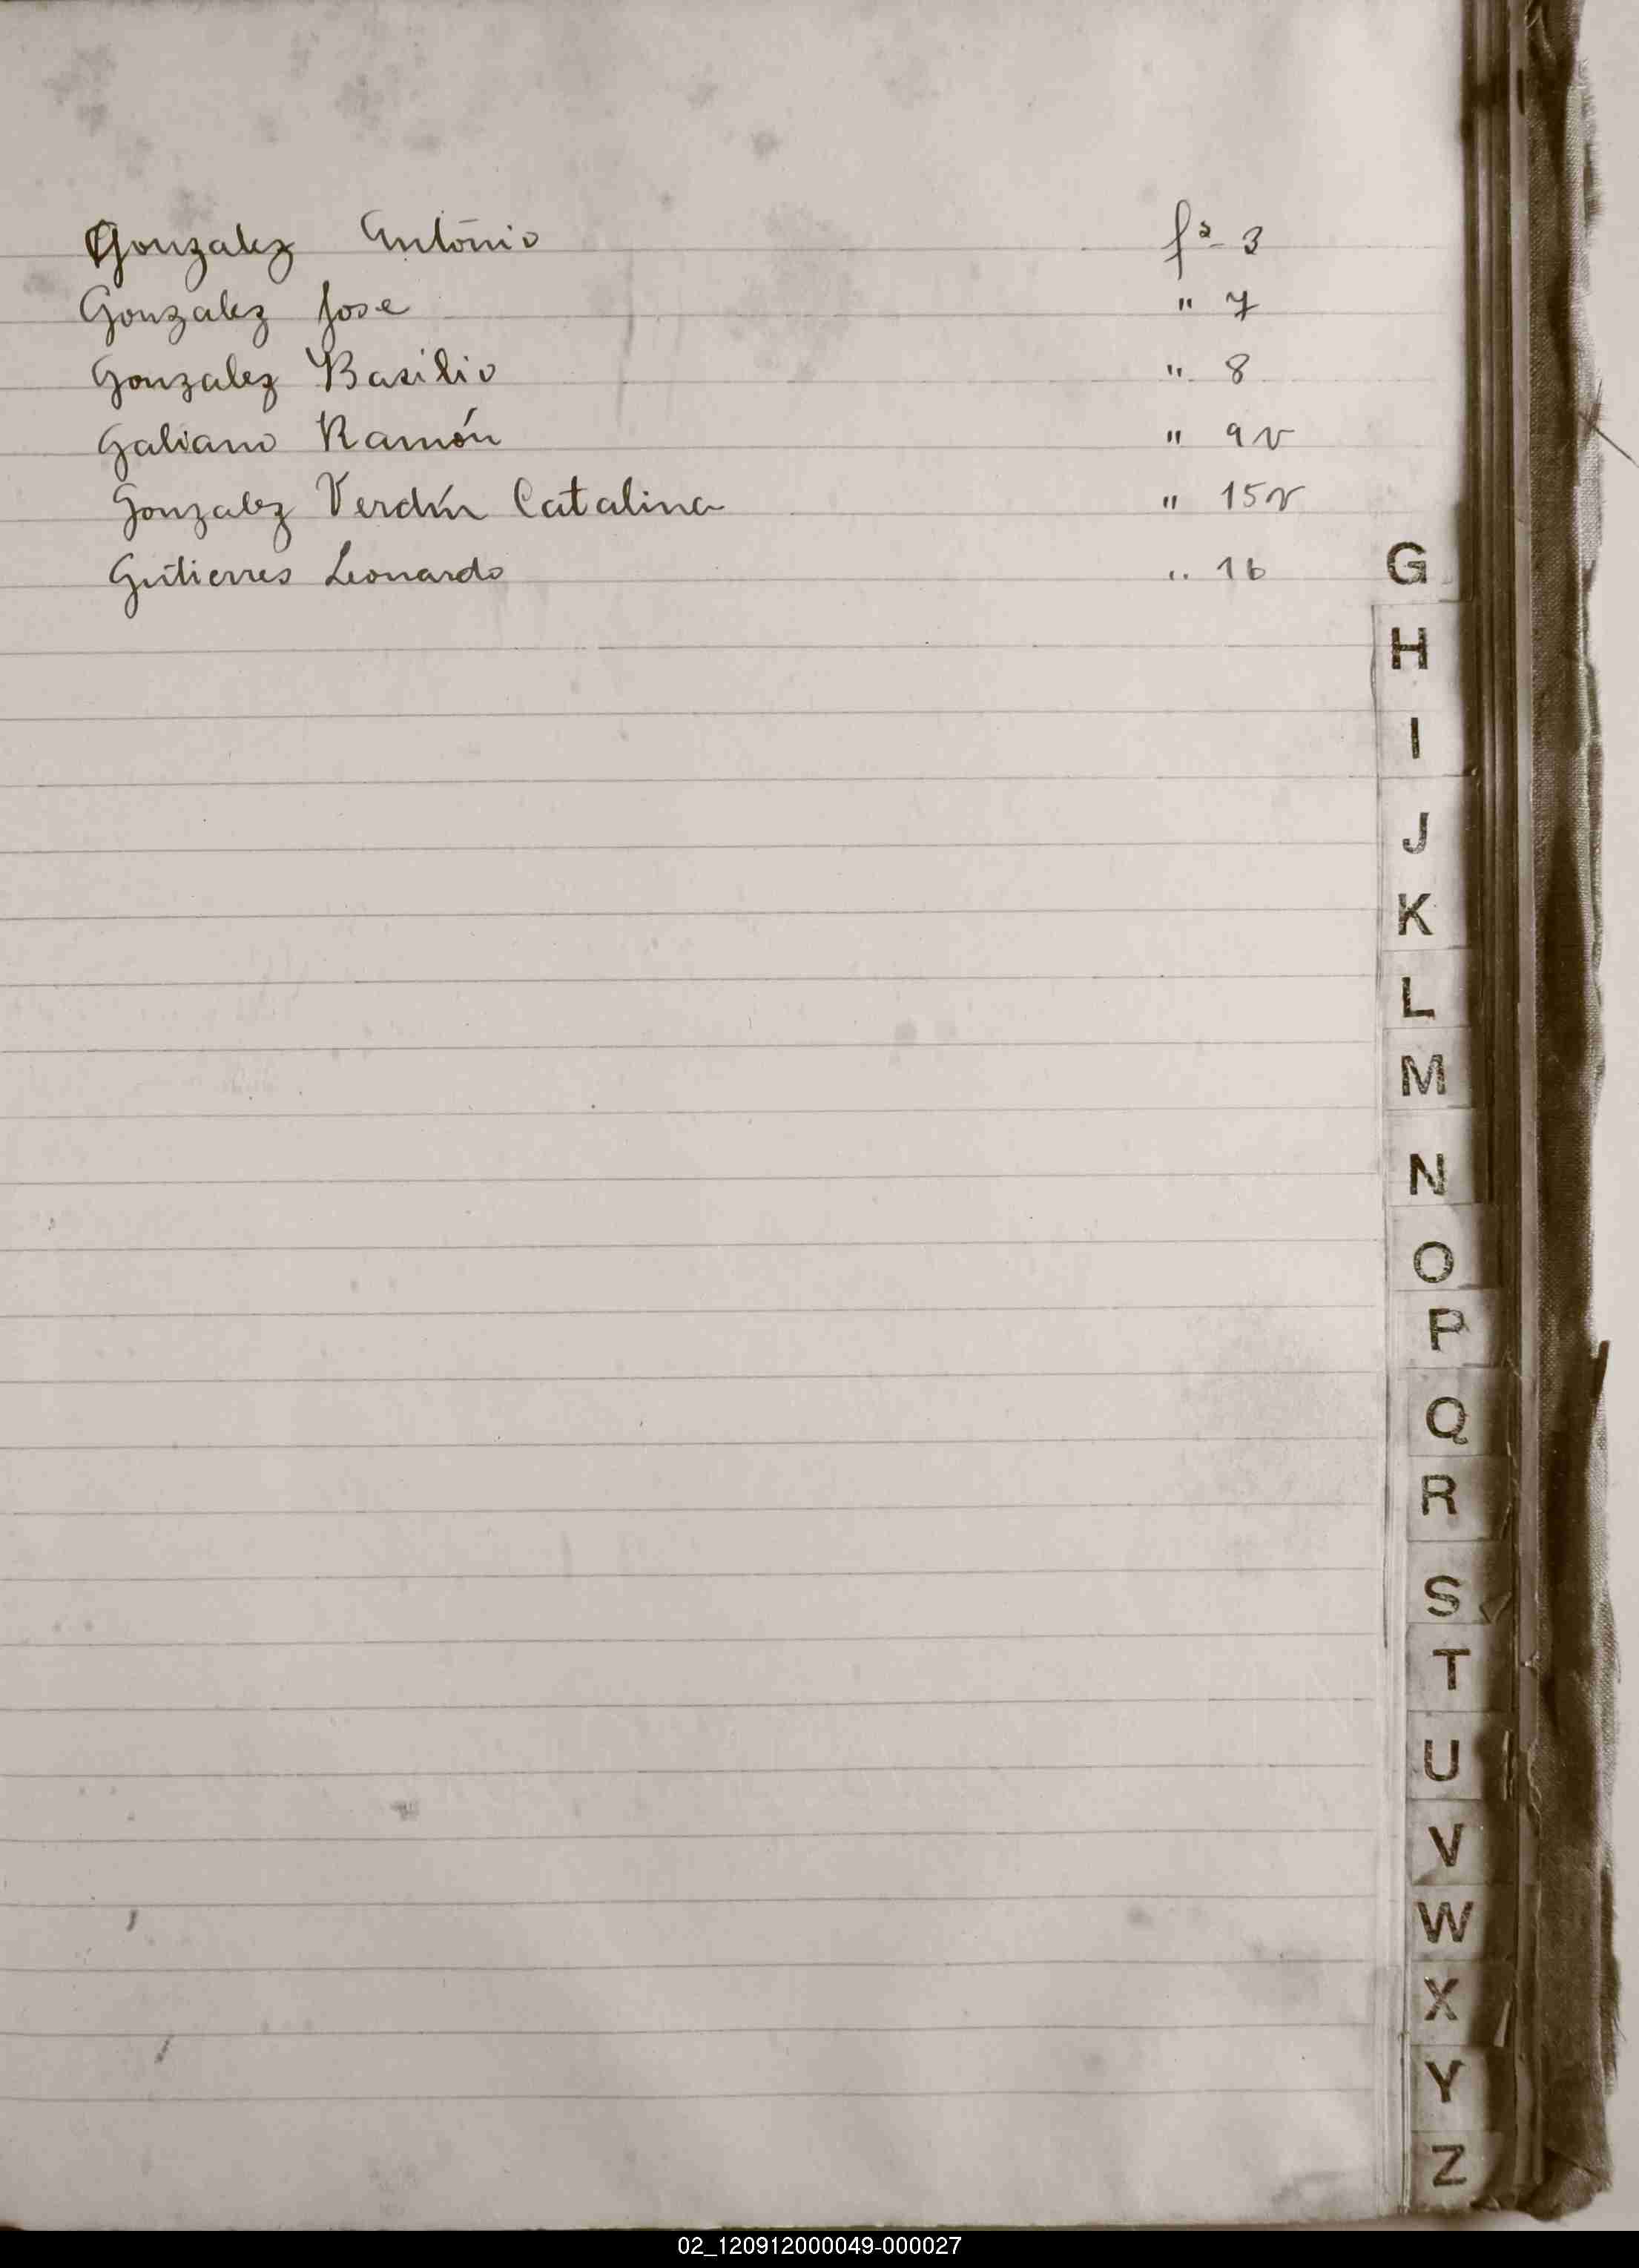 Gonzalez Antonio fº 3
Gonzalez Jose " 7
Gonzalez Basilio " 8
Galiano Ramón " 9v
Gonzalez Verdín Catalina " 15v
Gutierres Leonardo " 16
G
H
I
J
K
L
M
N
O
P
Q
R
S
T
U
V
W
X
Y
Z
02_120912000049-000027